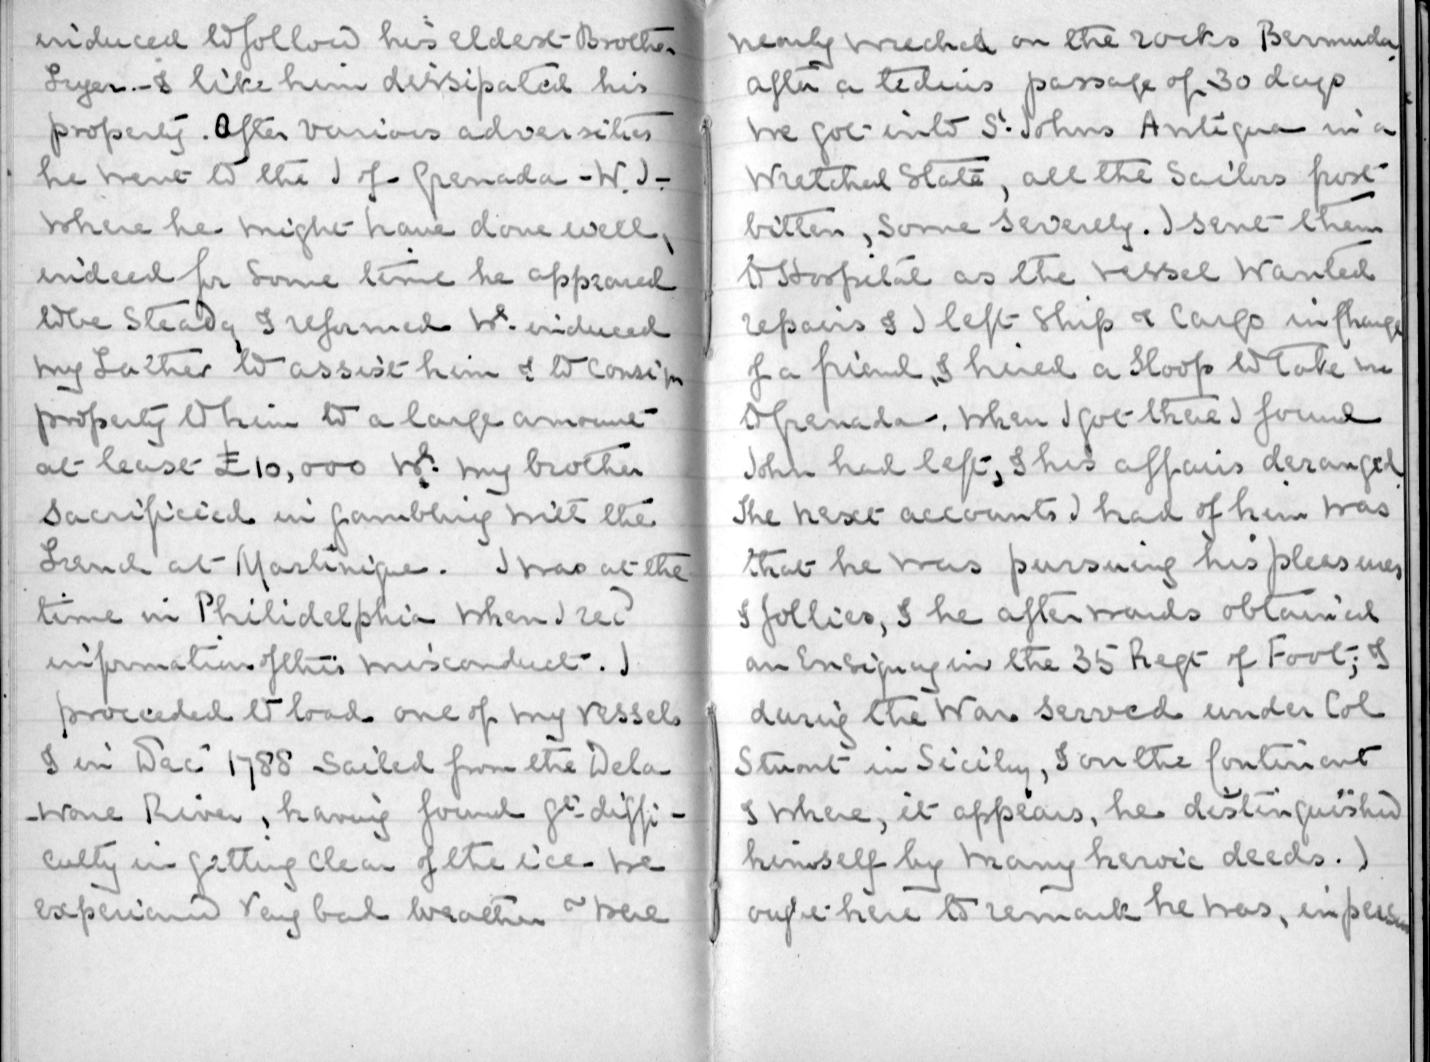 induced to follow his eldest Brother
& like him dissipated his
property. After various adversities
he went to the I of Grenada - W. I -
where he might have done well,
indeed for some time he appeared
to be steady & reformed wh. induced
my Father to assist him & to consign
property to him to a large amount
at least £10,000 wh. my brother
sacrificied in gambling with the
French at Martinique. I was at the
time in Philidelphia when I recd
information of this misconduct. I
proceeded to load one of my vessels
& in Dec 1788 sailed from the Dela
-ware River, having found gt diffi-
culty in getting clear of the ice - we
experiencd very bad weather & were
nearly wrecked on the rocks Bermuda,
after a tedius passage of 30 days
we got into St Johns Antigua in a
wretched state, all the Sailors frost
bitten, some severely. I sent them
to Hospital as the vessel wanted
repairs & I left ship & Cargo in Charge
of a friend, & hired a Sloop to take me
to Grenada. When I got there I found
John had left, & his affairs deranged.
The next accounts I had of him was
that he was pursuing his pleasures
& follies, & he afterwards obtained
an Ensigncy in the 35 Regt of Foot; &
during the War served under Col
Stuart in Sicily, & on the Continent
& where, it appears, he distinguished
himself by many heroic deeds. I
ought here to remark he was, in person